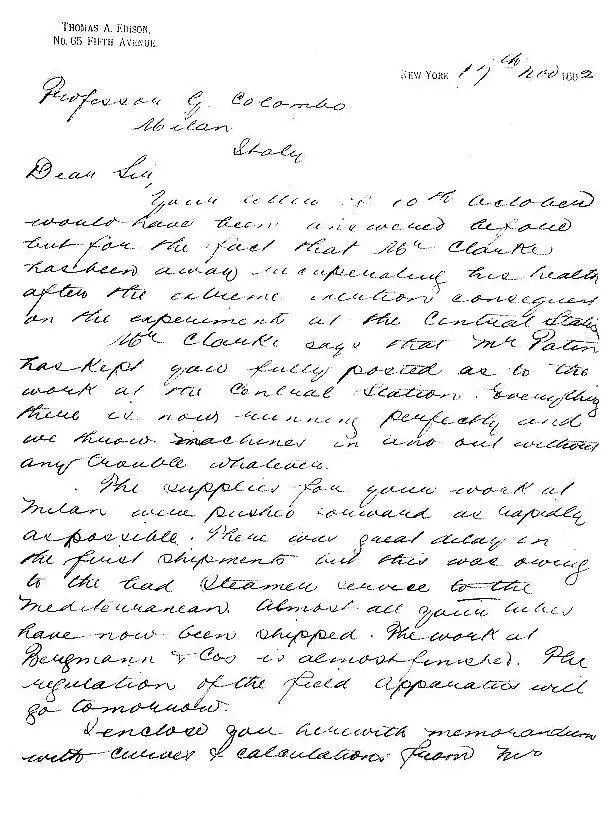 THOMAS A. EDISON,
No. 65 FIFTH AVENUE.
NEW YORK 17th Nov 1882
Professor G. Colombo
Milan
Italy
Dear Sir,
Your letter of 10th October
would have been answered before
but for the fact that Mr Clarke
has been away recuperating his health
after the extreme exertion consequent
on the experiment at the Central Station
Mr Clarke says that Mr
has kept you fully posted as to the
work at the Central Station. Everything
there is now running perfectly and
we throw machines in and out without
any trouble whatever.
The supplies for your work at
Milan were pushed forward as rapidly
as possible. There was great delay in
the first shipments but this was owing
to the bad Steamer service to the
Mediterranean. Almost all your tubes
have now been shipped. The work at
Bergmann & Cos is almost finished. The
regulation of the field apparatus will
go tomorrow.
I enclose you herewith memorandum
with curves & calculations from Mr